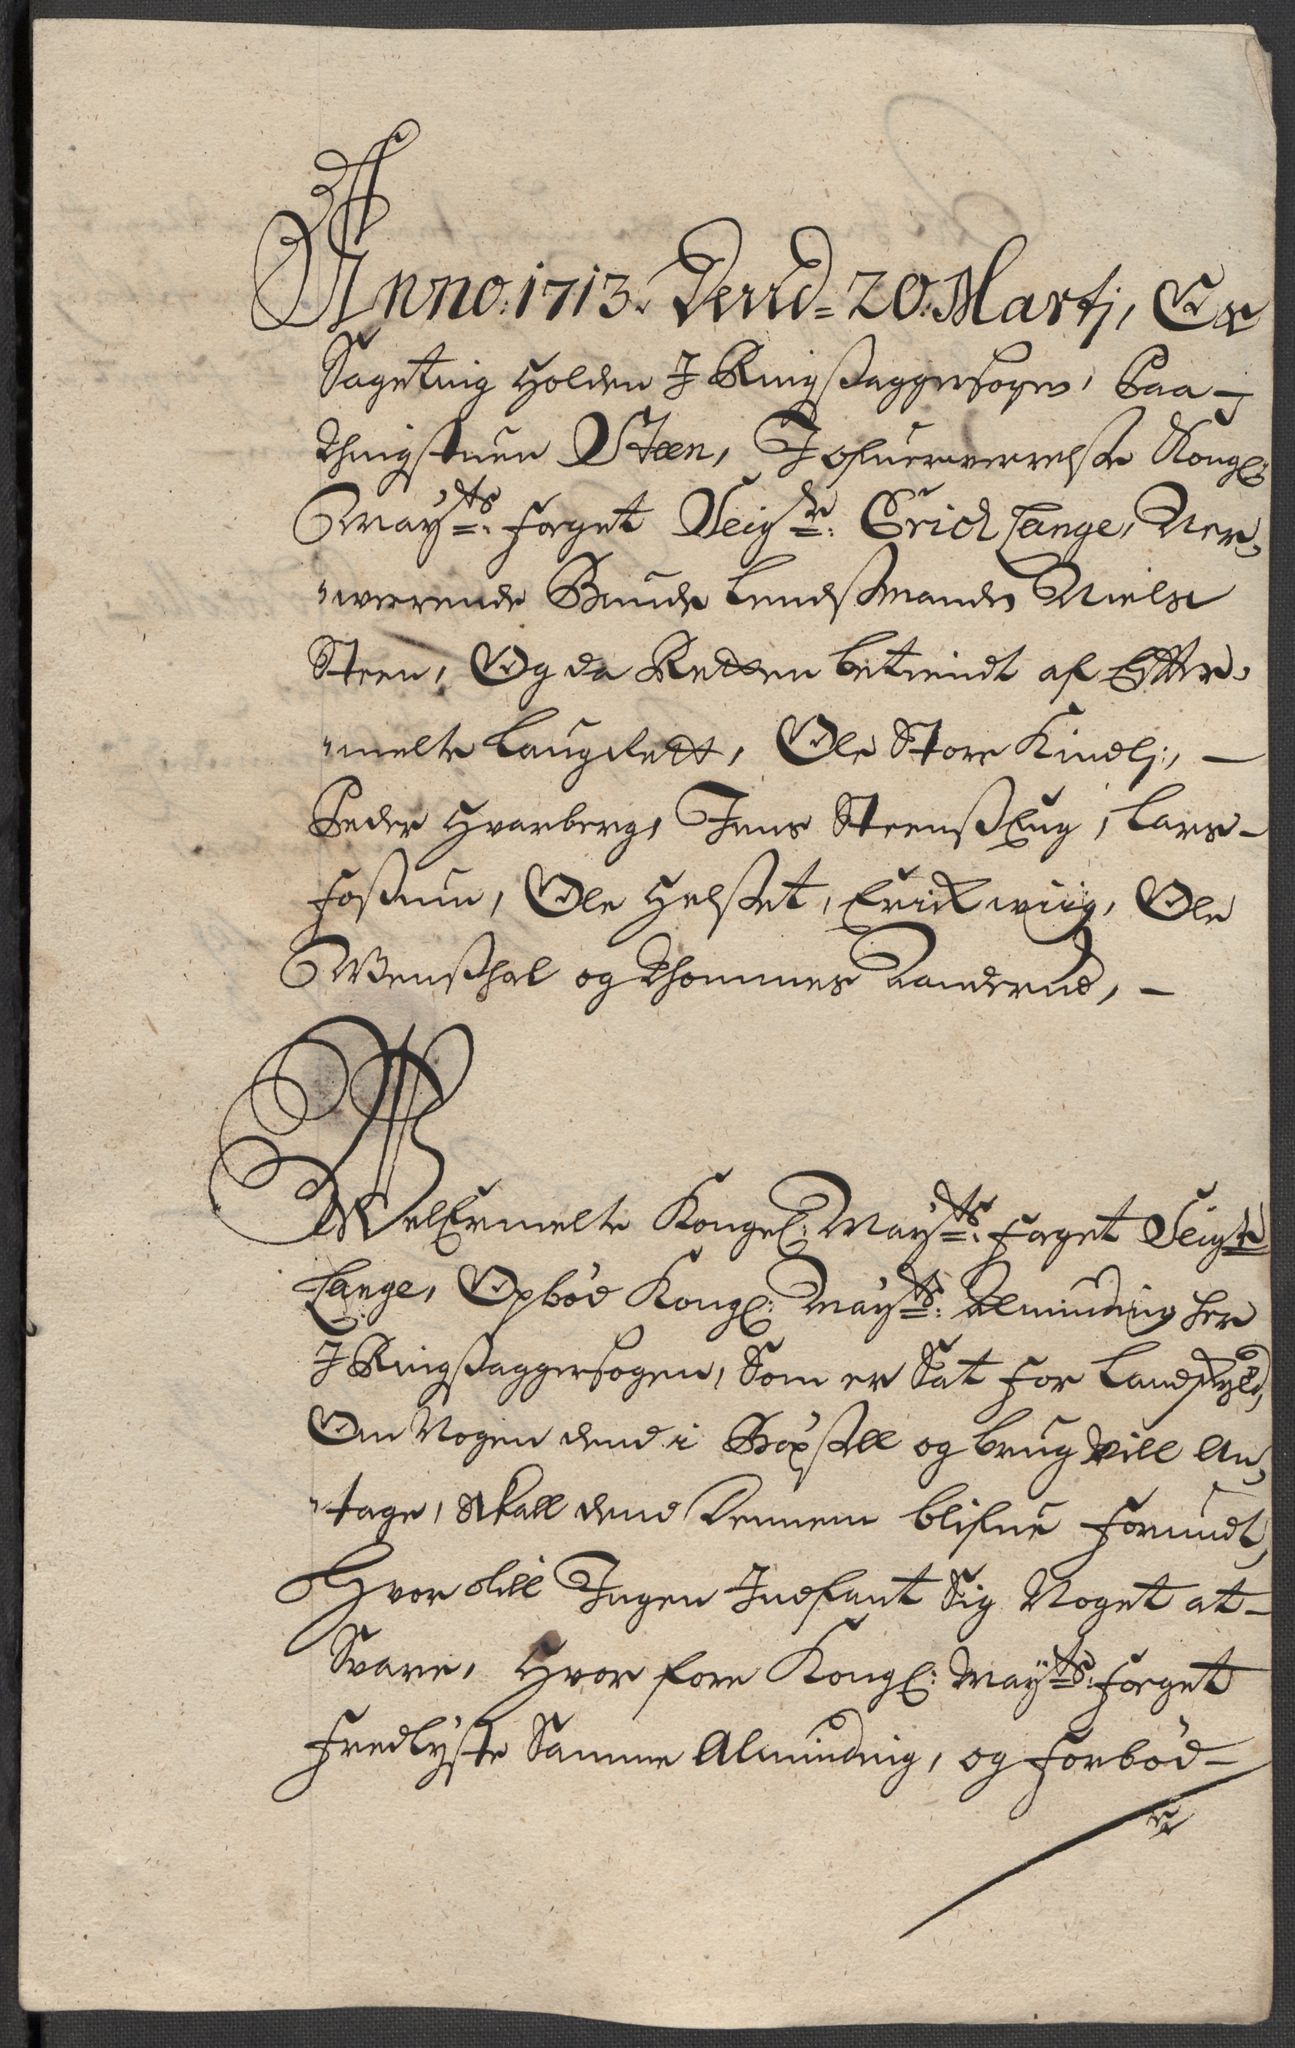 Anno: 1713. Dend= 20: Martj, Er
Sageting Holden J Ringsaggersogen, Paa
Thingstuen Steen, J ofuerverrelse Kongl:
Mayts: foget Seigr: Erick Lange, Ner,,
,,werrende Bunde Lendsmanden Niels
Steen, Og da Retten betiendt af Effter,,
,,melte Laugrett, Ole Store Kindlj,, —
Peder Hvarberg, Jens Steenslug, Lars—
Fossum, Ole Helstet, Erick wiig, Ole
Wenshol og Thommes Landerud, —
WelErmelte Kongel: Mayts: foget Seigr
Lange, Opbød Kongl: Mayts: Alminding her
J Ringsaggersogen, Som er Sat for Landskyld,
Om Nogen dend i Bøxsell og brug vill An,,
,,tage, skall dend Dennem blifue forundt,
Hvor till Ingen Indfant Sig Noget at—
Svare, Hvor fore Kongl: Mayts: foget
Fredlyste Samme Alminding, og forbød—